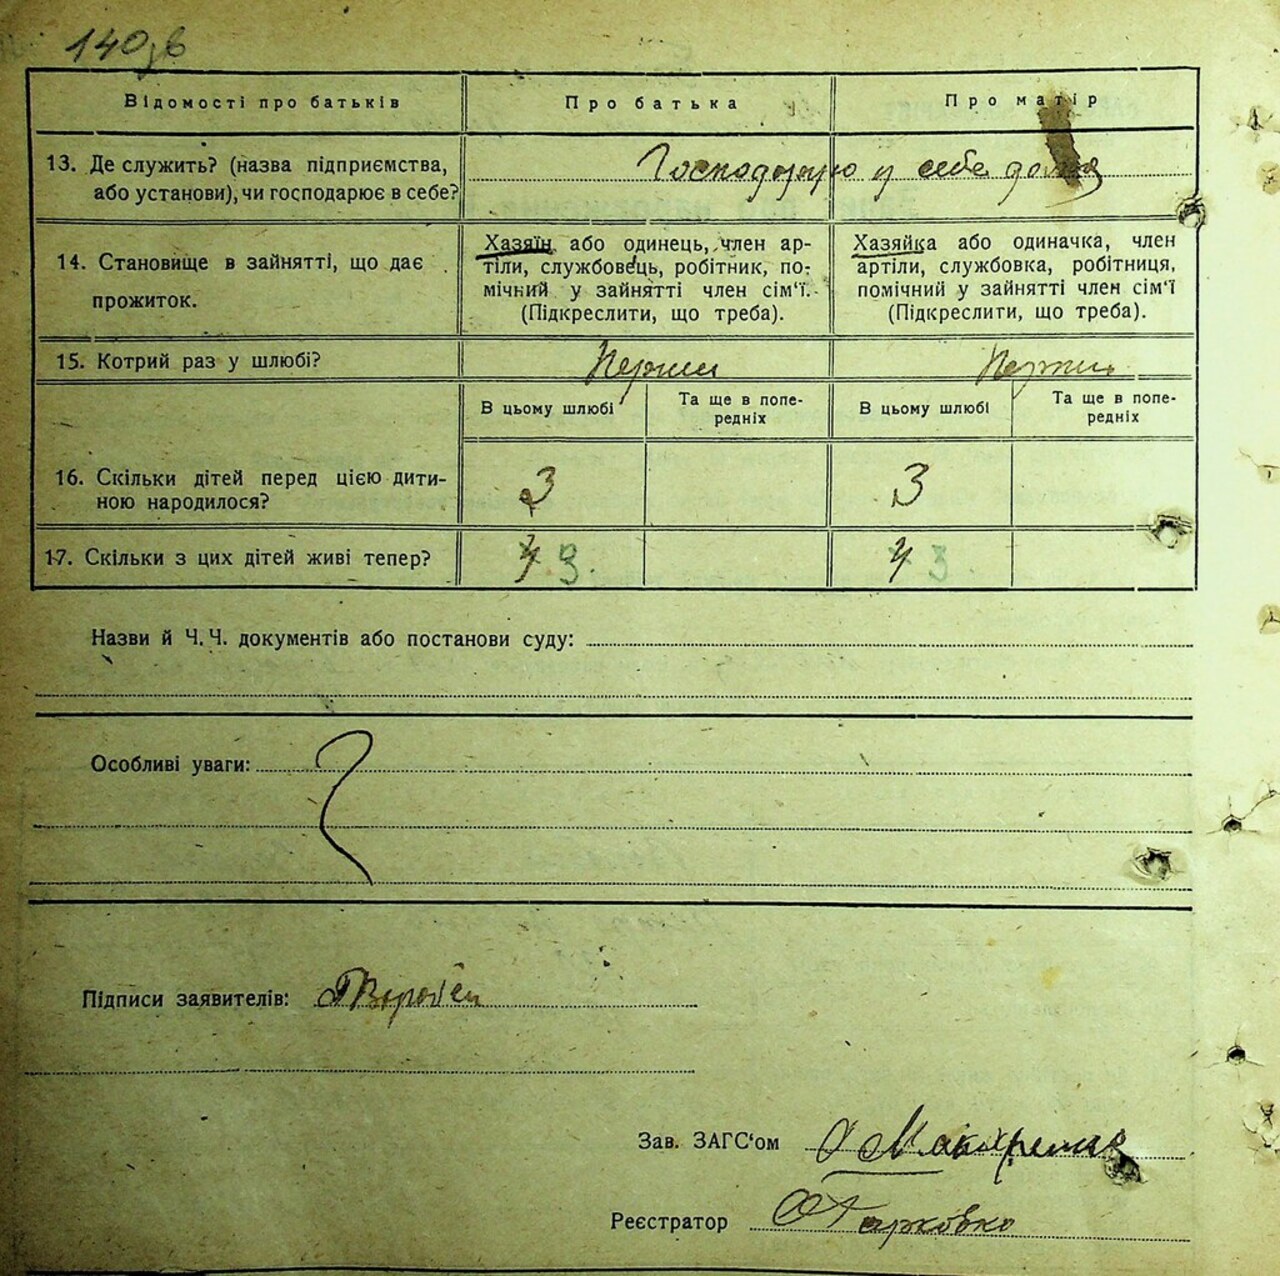 140зв
Відомості про батьків
Про батька
Про матір
13. Де служить? (назва підприємства,
або установи), чи господарює в себе?
Господарую у себе дома
14. Становище в зайнятті, що дає
прожиток.
Хазяїн або одинець, член ар-
тіли, службовець, робітник, по-
мічний у зайнятті член сім'ї.
(Підкреслити, що треба).
Хазяйка або одиначка, член
артіли, службовка, робітниця,
помічний у зайнятті член сім'ї
(Підкреслити, що треба).
15. Котрий раз у шлюбі?
Перший
Перший
В цьому шлюбі
Та ще в попе-
редніх
В цьому шлюбі
Та ще в попе-
редніх
16. Скільки дітей перед цією дити-
ною народилося?
3
3
17. Скільки з цих дітей живі тепер?
4 3.
4 3
Назви й Ч.Ч. документів або постанови суду:
Особливі уваги:
Підписи заявителів:
Зав. ЗАГС'ом
Реєстратор